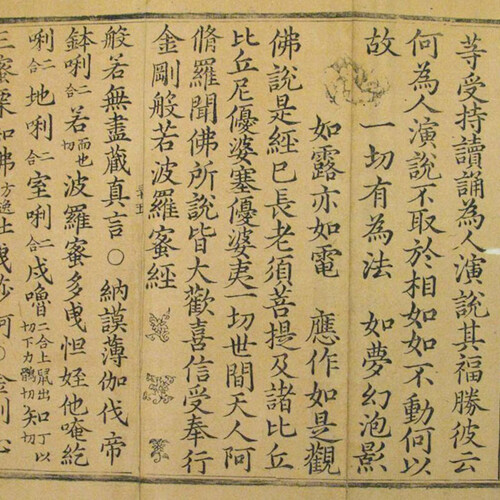 䓁受持讀誦為人演說其福勝彼云
何為人演說不取於相如如不動何以
故　一切有為法　如夢幻泡影
如露亦如電　應作如是觀
佛說是經已長老須菩提及諸比丘
比丘尼優婆塞優婆夷一切世間天人阿
脩羅聞佛所說皆大歡喜信受奉行
金剛般若波羅蜜經
般若無盡藏真言○納謨薄伽伐帝
鉢唎二合若而也切波羅蜜多曳怛姪他唵紇
唎二合地唎二合室唎二合戍嚕二合
三蜜栗知佛